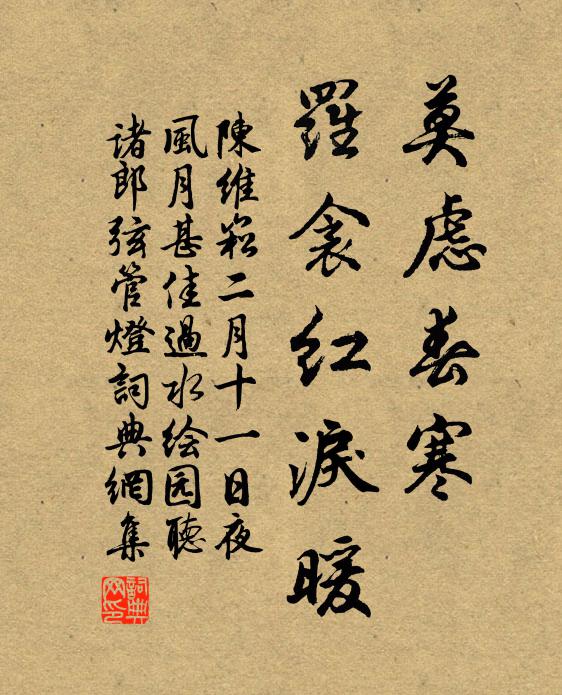 莫虑春寒
羅衾紅淚暖
陳維崧二月十一日夜
風月甚佳過水绘园聽
诸郎弦管燈詞典網集
詞典
网印